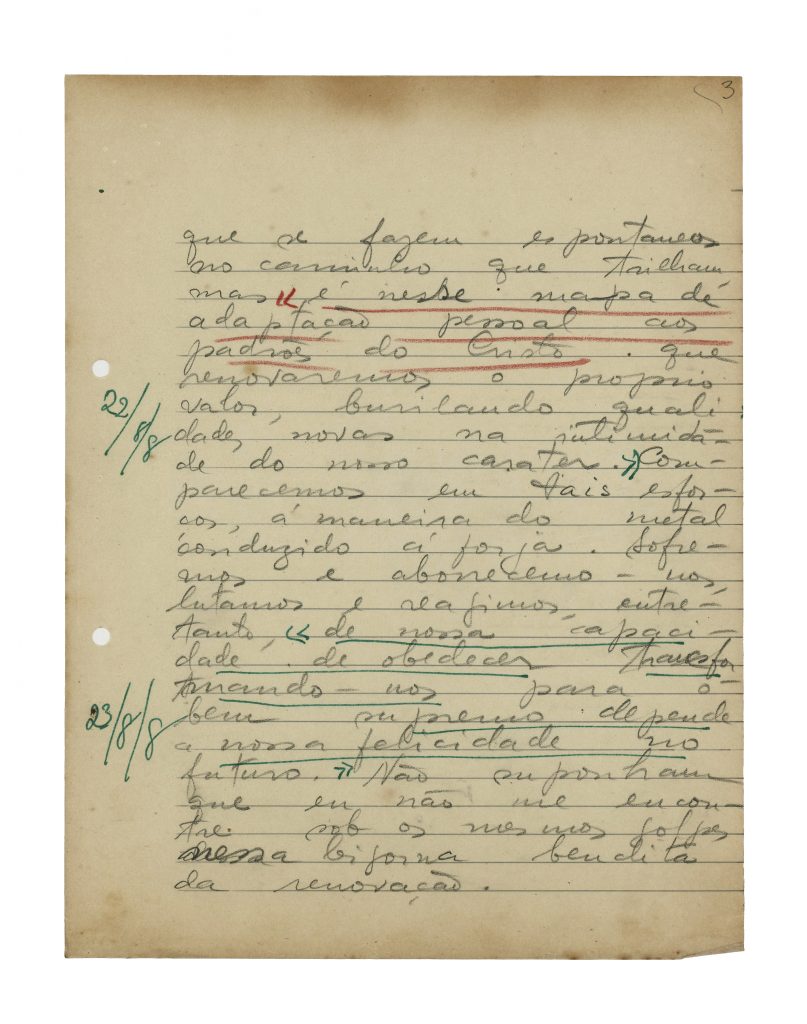 3
que se fazem espontaneos
no caminho que trilham
mas « é nesse mapa de
adaptação pessoal aos
padrões do Cristo. que
renovaremos o proprio
valor, burilando quali
22/8/8
dades novas na intimida-
de do nosso carater. » Com-
parecemos em tais esfor-
ços, á maneira do metal
conduzido á forja. Sofre-
mos e aborrecemo-nos,
lutamos e reagimos, entre-
tanto, « de nossa capaci-
dade de obedecer transfor
mando-nos para o
23/8/8
bem supremo depende
a nossa felicidade no
futuro. » Não suponham
que eu não me encon-
tre sob os mesmos golpes
nessa bigorna bendita
da renovação.